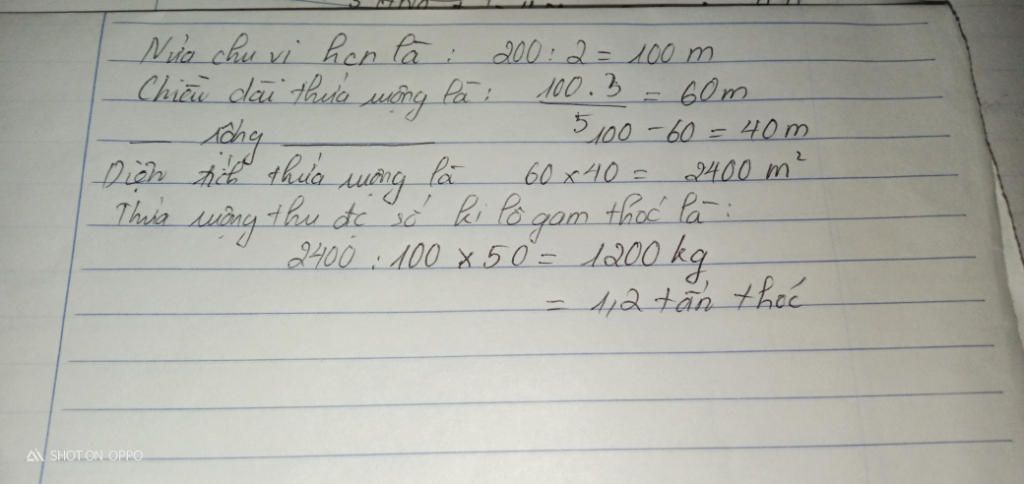 Nửa chu vi hcn là : 200 : 2 = 100 m
Chiều dài thửa ruộng là : 100 . 3 / 5 = 60 m
— rộng ——— 100 - 60 = 40 m
Diện tích thửa ruộng là 60 x 40 = 2400 m²
Thửa ruộng thu đc số ki lô gam thóc là :
2400 : 100 x 50 = 1200 kg
= 1,2 tấn thóc
SHOT ON OPPO